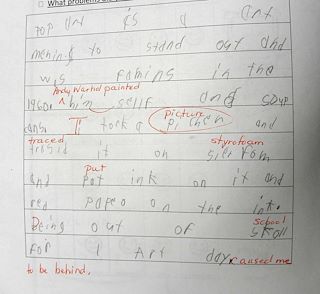 What problems
POP Art is a Art
mening to stand out and
wis Faming in the
Andy Warhol painted
1960s him self and soup
picture
cans I took a pichen and
traced styrofoam
trasid it on
put
and pot ink on it and
red paper on the ink.
school
Being out of skoll
For 1 Art day caused me
to be behind.